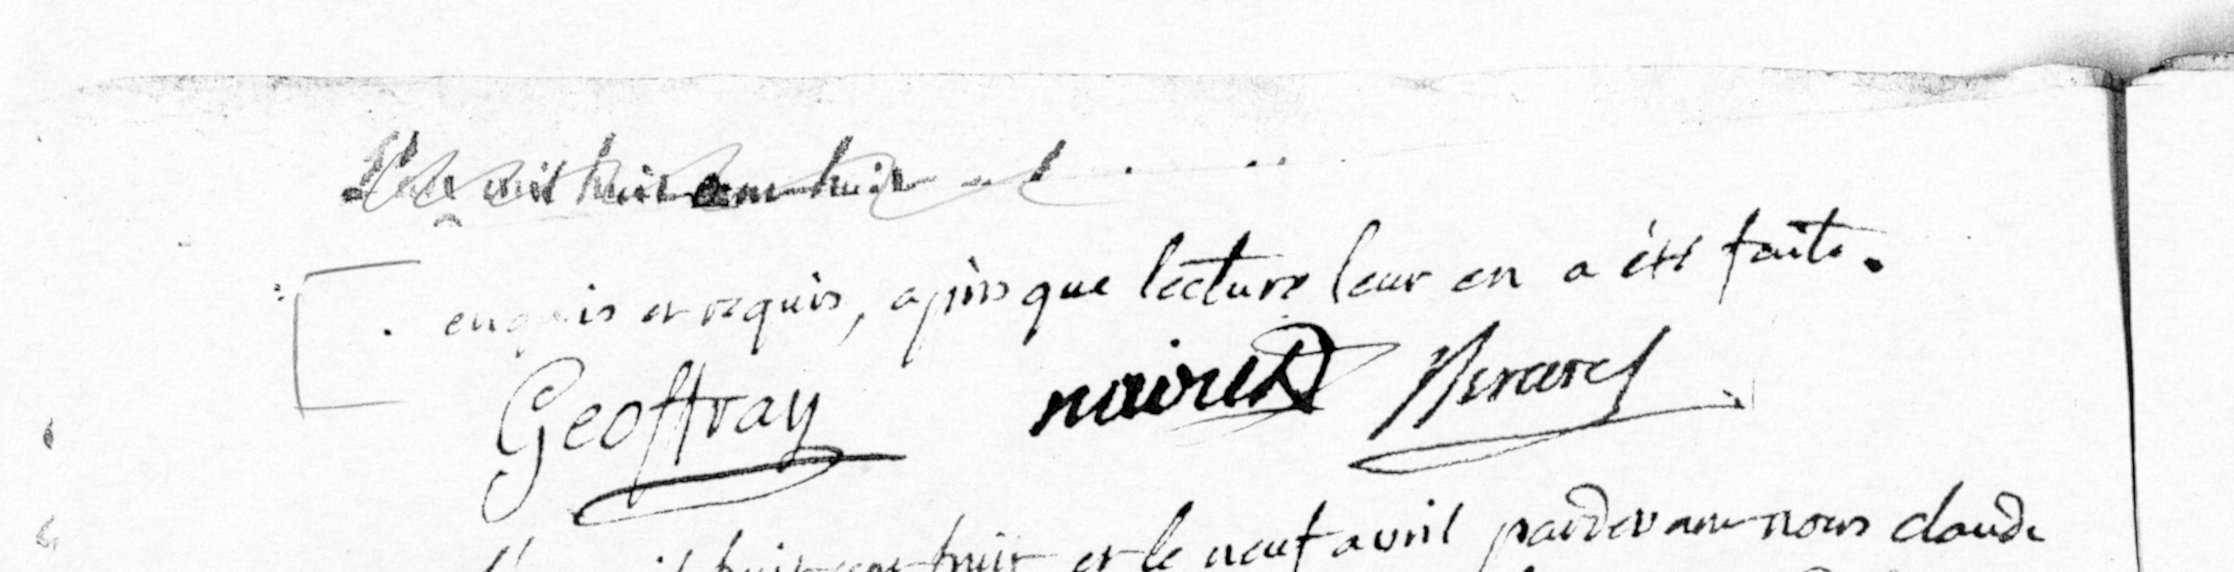 L'an mil huit cent huit et
enquis et requis, après que lecture leur en a été faite.
Geoffray nairet Berard
L'an mil huit cent huit et le neuf avril pardevant nous claude